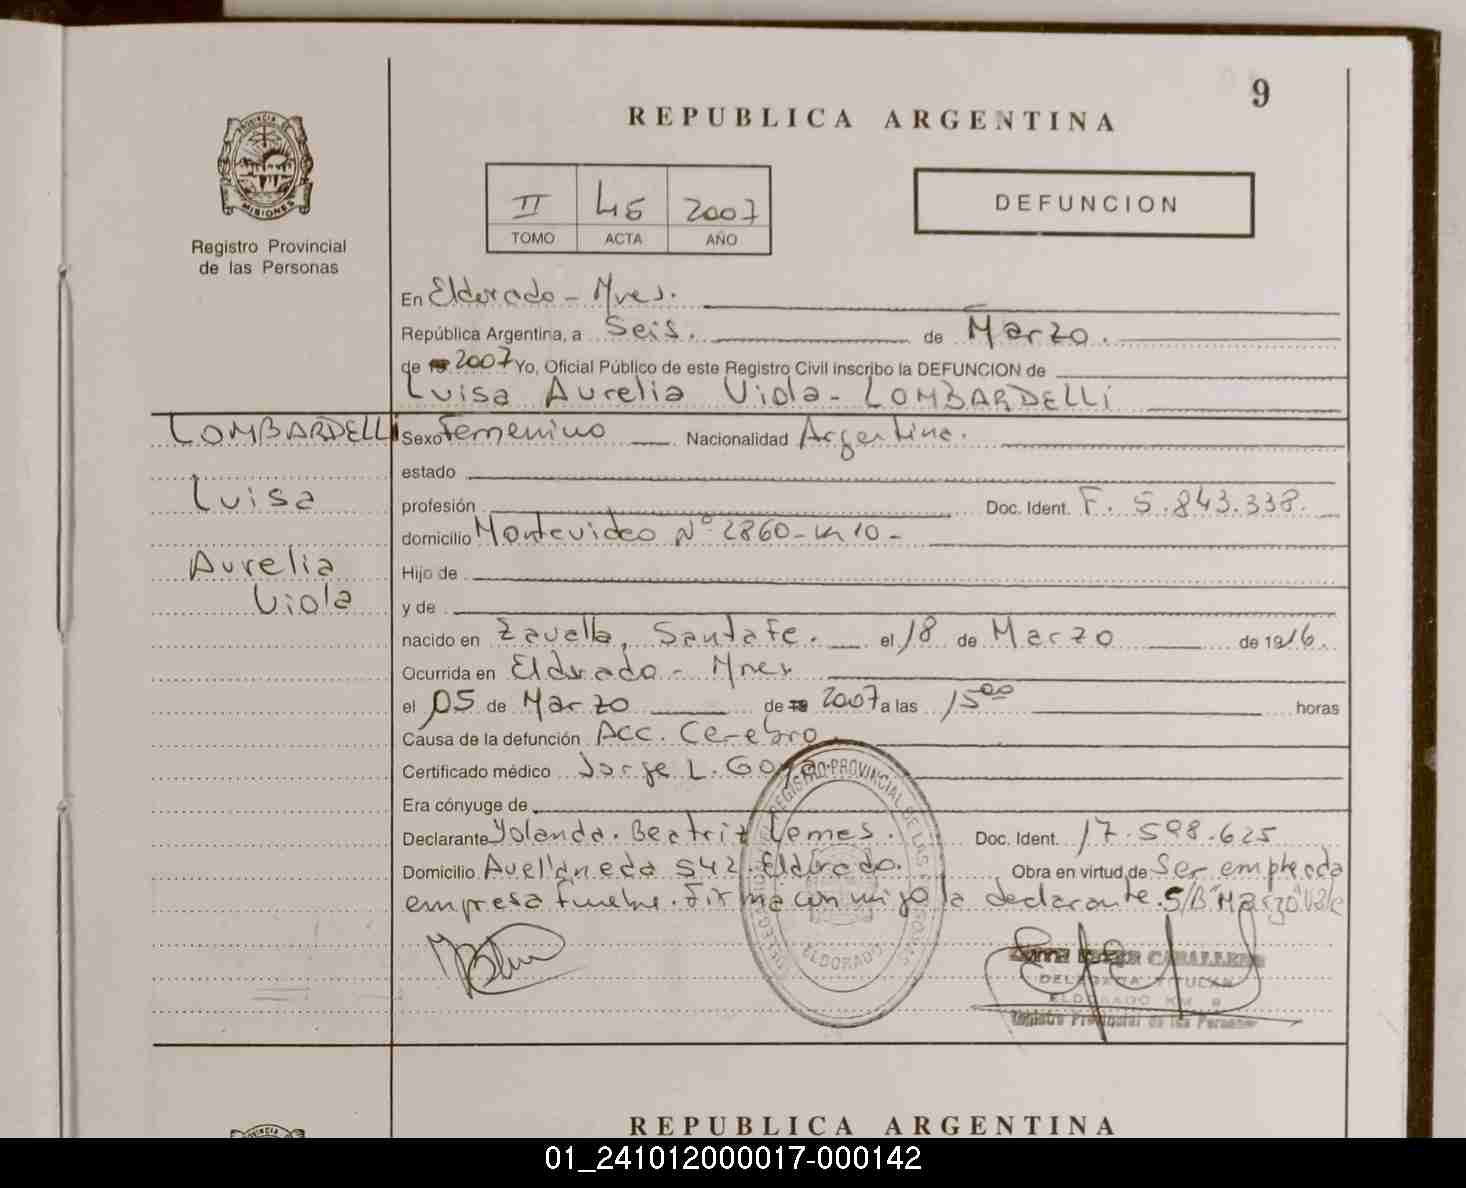 9
REPUBLICA ARGENTINA
PROVINCIA DE
MISIONES
Registro Provincial
de las Personas
II 45 2007
TOMO ACTA AÑO
DEFUNCION
En Eldorado - Mnes.
República Argentina, a Seis. de Marzo.
de 2007 Yo, Oficial Público de este Registro Civil inscribo la DEFUNCION de
Luisa Aurelia Viola - LOMBARDELLI
LOMBARDELLI
Luisa
Aurelia
Viola
Sexo Femenino Nacionalidad Argentina.
estado
profesión Doc. Ident. F. 5.843.338.
domicilio Montevideo Nº 2860 - Km 10 -
Hijo de
y de
nacido en Zavalla, Santa Fe. el 18 de Marzo de 1916.
Ocurrida en Eldorado - Mnes
el 05 de Marzo de 2007 a las 15 00 horas
Causa de la defunción Acc. Cerebro
Certificado médico Jorge L. Goya
Era cónyuge de
Declarante Yolanda. Beatriz Lemes. Doc. Ident. 17.598.625
Domicilio Avellaneda 542. Eldorado. Obra en virtud de Ser empleada
empresa funebre. Firma conmigo la declarante. S/B "Marzo" Vale
REGISTRO PROVINCIAL DE LAS PERSONAS
ELDORADO
CABALLERO
DELEGADA TITULAR
ELDORADO KM. 9
Registro Provincial de las Personas
REPUBLICA ARGENTINA
01_241012000017-000142